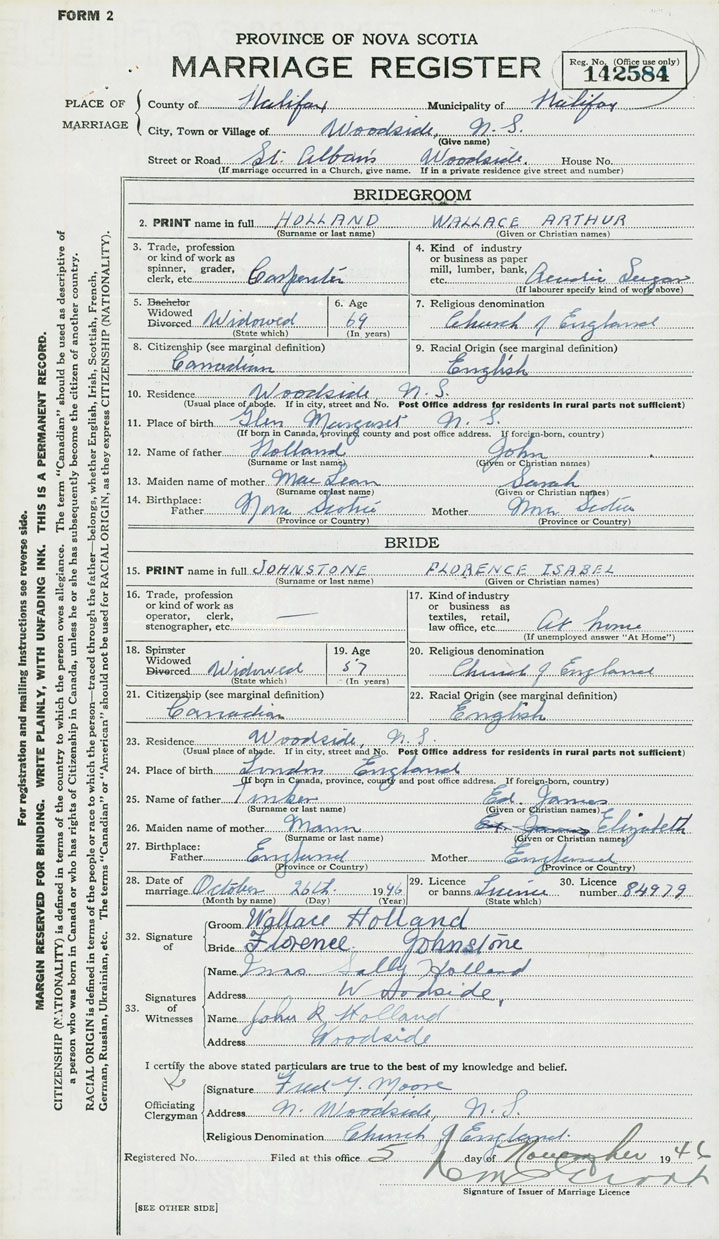 FORM 2
PROVINCE OF NOVA SCOTIA
MARRIAGE REGISTER
Reg. No. (Office use only)
142584
PLACE OF MARRIAGE
County of Halifax Municipality of Halifax
City, Town or Village of Woodside, N.S.
(Give name)
Street or Road St. Alban's Woodside. House No.
(If marriage occurred in a Church, give name. If in a private residence give street and number)
BRIDEGROOM
2. PRINT name in full HOLLAND WALLACE ARTHUR
(Surname or last name) (Given or Christian names)
3. Trade, profession or kind of work as spinner, grader, clerk, etc. Carpenter
4. Kind of industry or business as paper mill, lumber, bank, etc. Acadia Sugar
(If labourer specify kind of work above)
5. Bachelor Widowed Divorced Widowed
(State which)
6. Age 69
(In years)
7. Religious denomination
Church of England
8. Citizenship (see marginal definition)
Canadian
9. Racial Origin (see marginal definition)
English
10. Residence Woodside N.S.
(Usual place of abode. If in city, street and No. Post Office address for residents in rural parts not sufficient)
11. Place of birth Glen Margaret N.S.
(If born in Canada, province, county and post office address. If foreign-born, country)
12. Name of father Holland John
(Surname or last name) (Given or Christian names)
13. Maiden name of mother MacLean Sarah
(Surname or last name) (Given or Christian names)
14. Birthplace: Father Nova Scotia Mother Nova Scotia
(Province or Country) (Province or Country)
BRIDE
15. PRINT name in full JOHNSTONE FLORENCE ISABEL
(Surname or last name) (Given or Christian names)
16. Trade, profession or kind of work as operator, clerk, stenographer, etc. —
17. Kind of industry or business as textiles, retail, law office, etc. At home
(If unemployed answer "At Home")
18. Spinster Widowed Divorced Widowed
(State which)
19. Age 57
(In years)
20. Religious denomination
Church of England
21. Citizenship (see marginal definition)
Canadian
22. Racial Origin (see marginal definition)
English
23. Residence Woodside, N.S.
(Usual place of abode. If in city, street and No. Post Office address for residents in rural parts not sufficient)
24. Place of birth London England
(If born in Canada, province, county and post office address. If foreign-born, country)
25. Name of father Tinker Ed. James
(Surname or last name) (Given or Christian names)
26. Maiden name of mother Mann Ed. James Elizabeth
(Surname or last name) (Given or Christian names)
27. Birthplace: Father England Mother England
(Province or Country) (Province or Country)
28. Date of marriage October 26th. 1946
(Month by name) (Day) (Year)
29. Licence or banns Licence
(State which)
30. Licence number 84979
32. Signature of
Groom Wallace Holland
Bride Florence Johnstone
33. Signatures of Witnesses
Name Mrs. Sally Holland
Address Woodside,
Name John R Holland
Address Woodside
I certify the above stated particulars are true to the best of my knowledge and belief.
Officiating Clergyman
Signature Fred Y. Moore
Address N. Woodside, N.S.
Religious Denomination Church of England.
Registered No. Filed at this office 5 day of November 1946
Signature of Issuer of Marriage Licence
[SEE OTHER SIDE]
For registration and mailing instructions see reverse side.
MARGIN RESERVED FOR BINDING. WRITE PLAINLY, WITH UNFADING INK. THIS IS A PERMANENT RECORD.
CITIZENSHIP (NATIONALITY) is defined in terms of the country to which the person owes allegiance. The term "Canadian" should be used as descriptive of
a person who was born in Canada or who has rights of Citizenship in Canada, unless he or she has subsequently become the citizen of another country.
RACIAL ORIGIN is defined in terms of the people or race to which the person—traced through the father—belongs, whether English, Irish, Scottish, French,
German, Russian, Ukrainian, etc. The terms "Canadian" or "American" should not be used for RACIAL ORIGIN, as they express CITIZENSHIP (NATIONALITY).